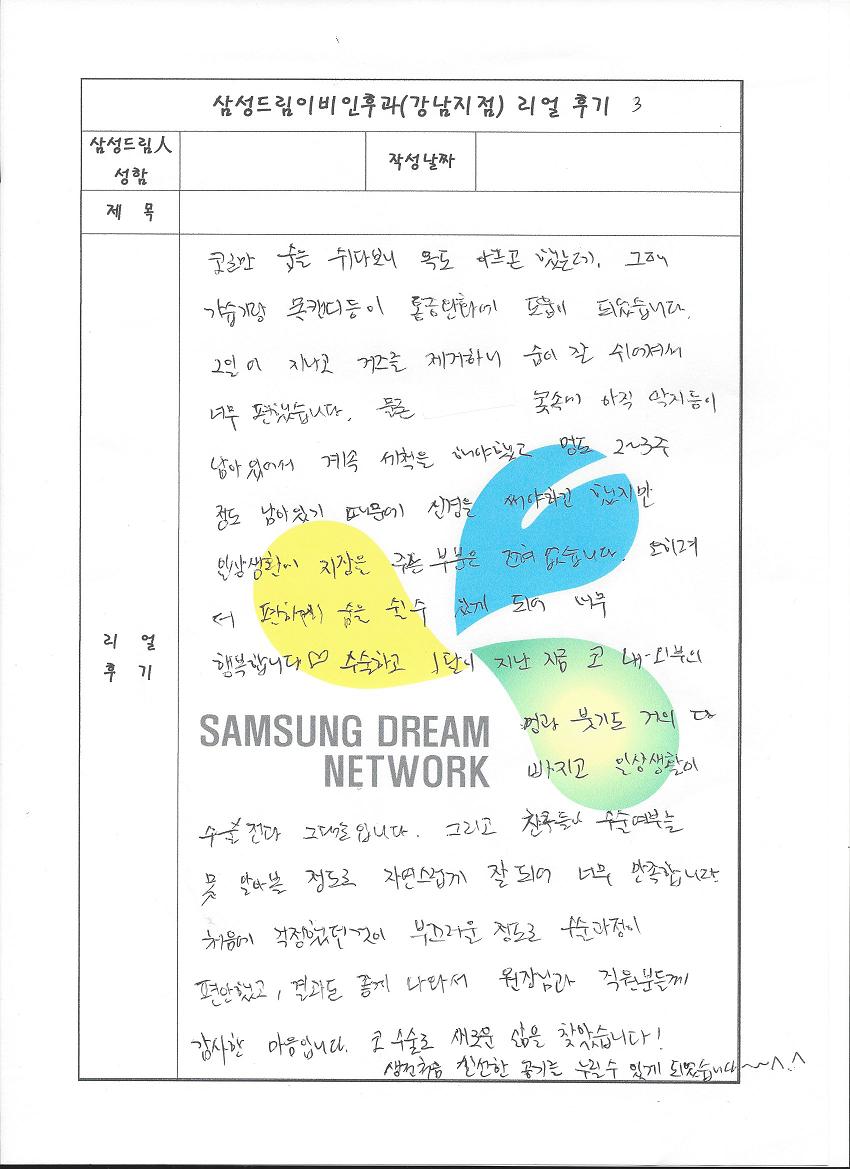 삼성드림이비인후과(강남지점) 리얼 후기 3
삼성드림人
성함
작성날짜
제 목
리 얼
후 기
숨을 쉬다보니 목도 아프곤 했는데, 그래
가습기랑 목캔디등이 통증완화에 도움이 되었습니다.
2일이 지나고 거즈를 제거하니 숨이 잘 쉬어져서
너무 편했습니다. 물론 콧속에 아직 딱지등이
남아있어서 계속 세척을 해야했고 멍도 2~3주
정도 남아있기 때문에 신경을 써야하긴 했지만
일상생활에 지장을 주는 부분은 전혀 없습니다. 오히려
더 편하게 숨을 쉴 수 있게 되어 너무
행복합니다♡ 수술하고 1달이 지난 지금 코 내·외부의
멍과 붓기도 거의 다
빠지고 일상생활이
수술 전과 그대로입니다. 그리고 친구들이 수술여부를
못 알아볼 정도로 자연스럽게 잘 되어 너무 만족합니다
처음에 걱정했던것이 부끄러울 정도로 수술과정이
편안했고, 결과도 좋게 나와서 원장님과 직원분들께
감사한 마음입니다. 코 수술로 새로운 삶을 찾았습니다!
생전처음 신선한 공기를 누릴 수 있게 되었습니다~~^.^
SAMSUNG DREAM
NETWORK